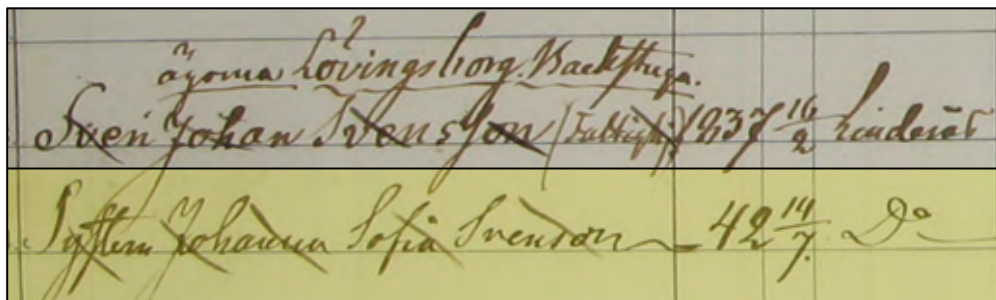 ägorna Lövingsborg. Backstuga.
Sven Johan Svensson (Fattighj) 1837 16/2 Linderås
Systern Johanna Sofia Svenson – 42 14/7 Do